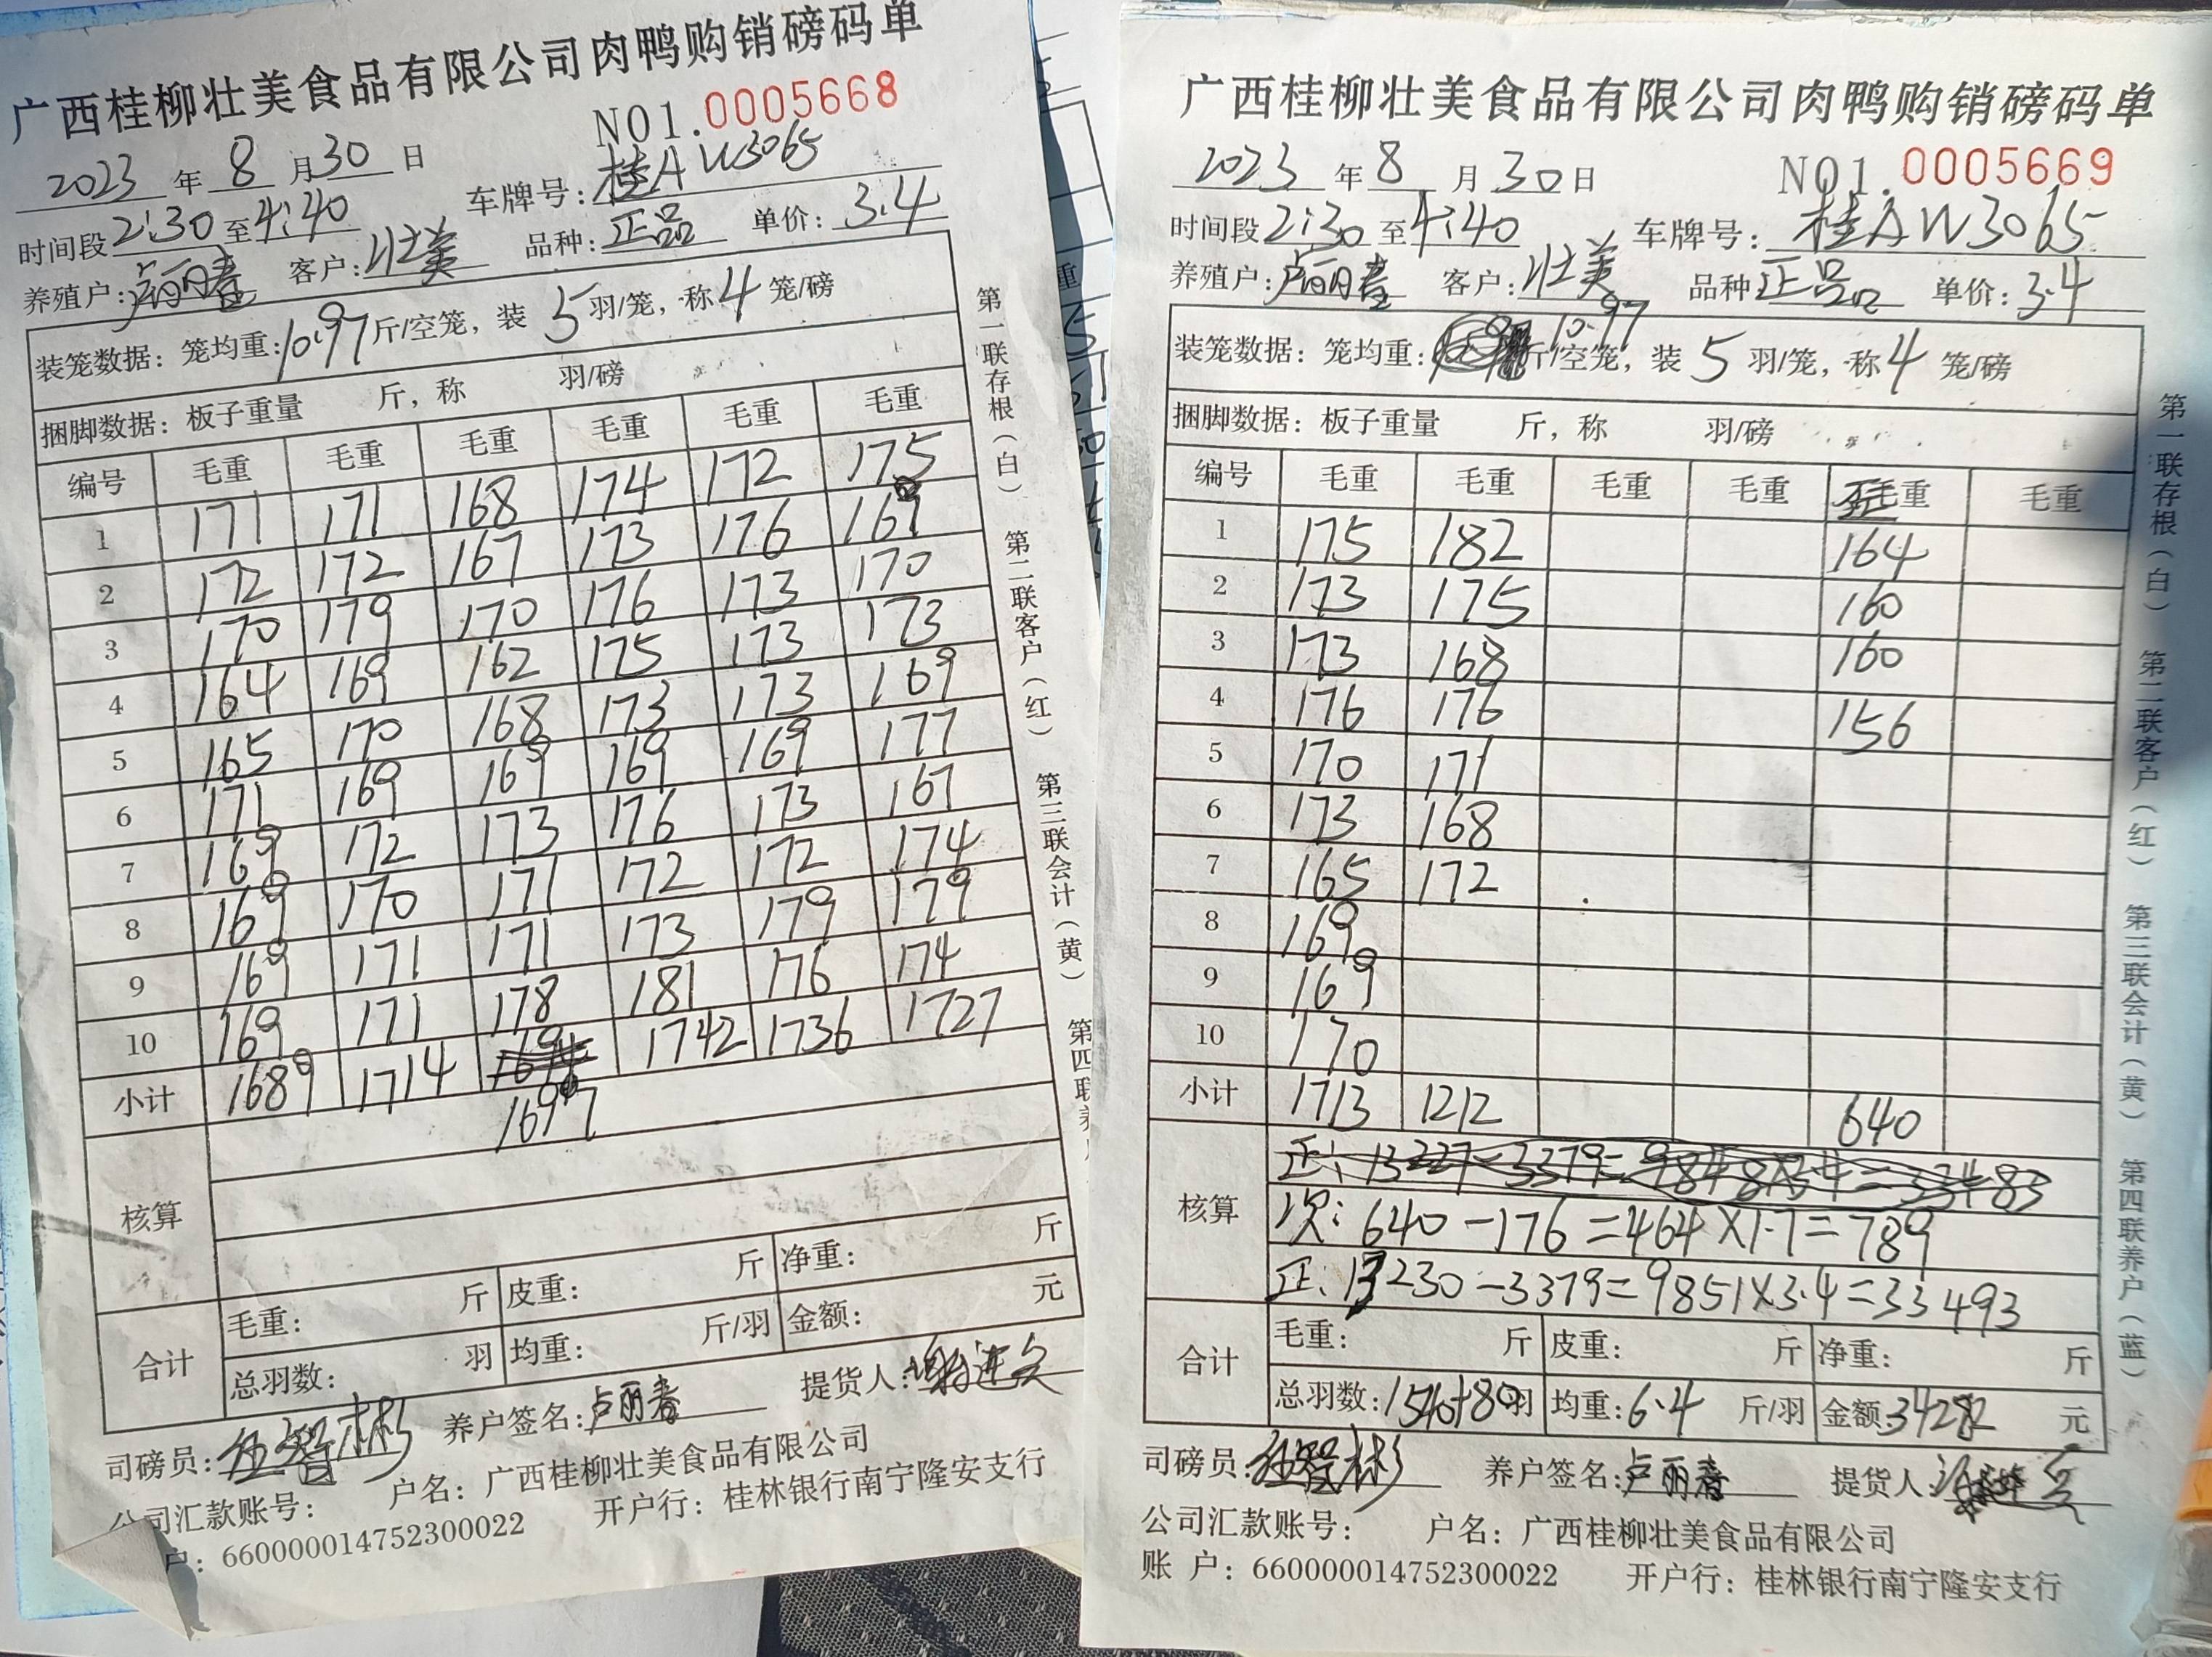 广西桂柳壮美食品有限公司肉鸭购销磅码单
NO1.0005668
2023 年 8 月 30 日
车牌号: 桂A W3065
时间段 2:30 至 4:40
养殖户: 卢丽春 客户: 壮美 品种: 正品 单价: 3.4
装笼数据: 笼均重: 10.97 斤/空笼, 装 5 羽/笼, 称 4 笼/磅
捆脚数据: 板子重量 斤, 称 羽/磅
编号 毛重 毛重 毛重 毛重 毛重 毛重
1 171 171 168 174 172 175
2 172 172 167 173 176 169
3 170 179 170 176 173 170
4 164 169 162 175 173 173
5 165 170 168 173 173 169
6 171 169 169 169 169 177
7 169 172 173 176 173 167
8 169 170 171 172 172 174
9 169 171 171 173 179 179
10 169 171 178 181 176 174
小计 1689 1714 1697 1742 1736 1727
核算
合计
毛重: 斤 皮重: 斤 净重: 斤
总羽数: 羽 均重: 斤/羽 金额: 元
司磅员: 养户签名: 卢丽春 提货人:
公司汇款账号: 户名: 广西桂柳壮美食品有限公司
户: 660000014752300022 开户行: 桂林银行南宁隆安支行
第一联存根(白) 第二联客户(红) 第三联会计(黄) 第四联养
广西桂柳壮美食品有限公司肉鸭购销磅码单
2023 年 8 月 30 日 NO1.0005669
时间段 2:30 至 4:40 车牌号: 桂A W3065
养殖户: 卢丽春 客户: 壮美 品种 正品 单价: 3.4
装笼数据: 笼均重: 10.97 斤/空笼, 装 5 羽/笼, 称 4 笼/磅
捆脚数据: 板子重量 斤, 称 羽/磅
编号 毛重 毛重 毛重 毛重 毛重 毛重
1 175 182 164
2 173 175 160
3 173 168 160
4 176 176 156
5 170 171
6 173 168
7 165 172
8 169
9 169
10 170
小计 1713 1212 640
核算
正: 13227-3379=9848×3.4=33483
次: 640-176=464×1.7=789
正: 13230-3379=9851×3.4=33493
合计
毛重: 斤 皮重: 斤 净重: 斤
总羽数: 1540+80羽 均重: 6.4 斤/羽 金额: 34282 元
司磅员: 养户签名: 卢丽春 提货人:
公司汇款账号: 户名: 广西桂柳壮美食品有限公司
账 户: 660000014752300022 开户行: 桂林银行南宁隆安支行
第一联存根(白) 第二联客户(红) 第三联会计(黄) 第四联养户(蓝)